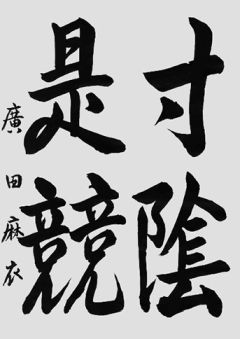 寸陰
是競
廣田麻衣